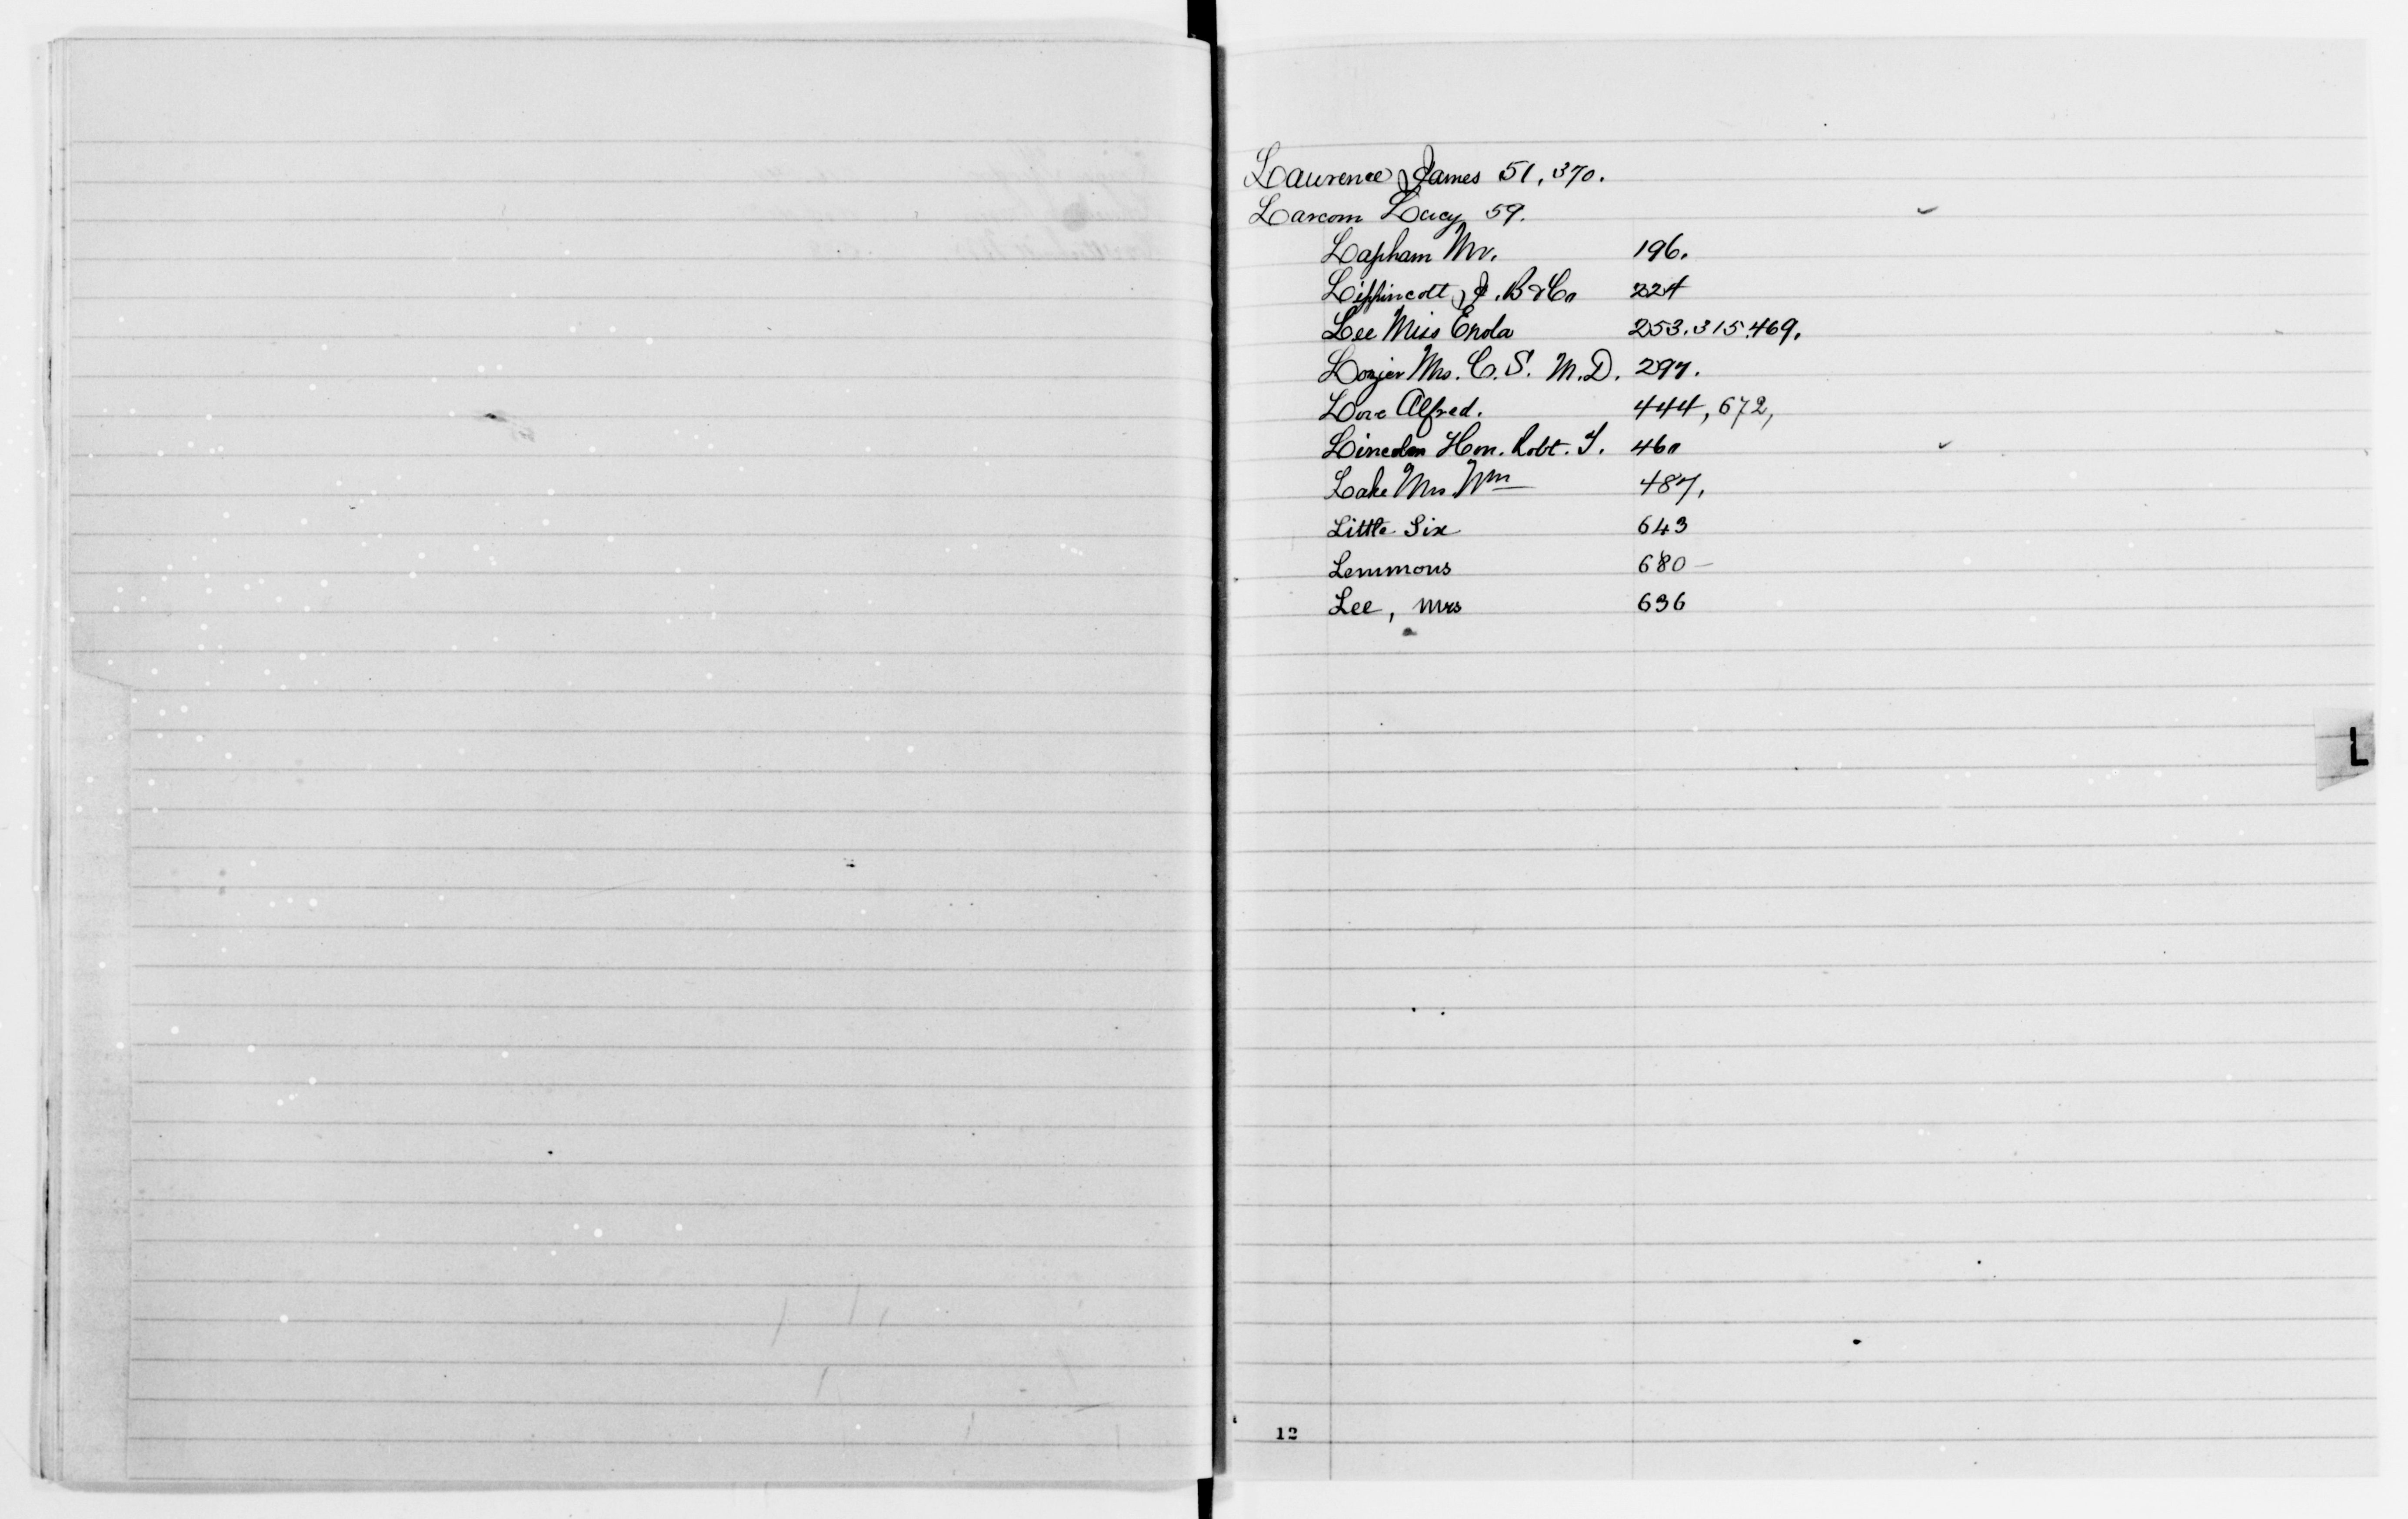 Laurence James 51, 370.
Larcom Lucy 59.
Lapham Mr. 196.
Lippincott J. B & Co 224
Lee Miss Enola 253. 315. 469.
Lozier Mrs. C. S. M. D. 297.
Love Alfred. 444, 672,
Lincoln Hon. Robt. T. 460
Lake Mrs Wm 487,
Little Six 643
Lemmons 680 -
Lee, Mrs 636
L
12